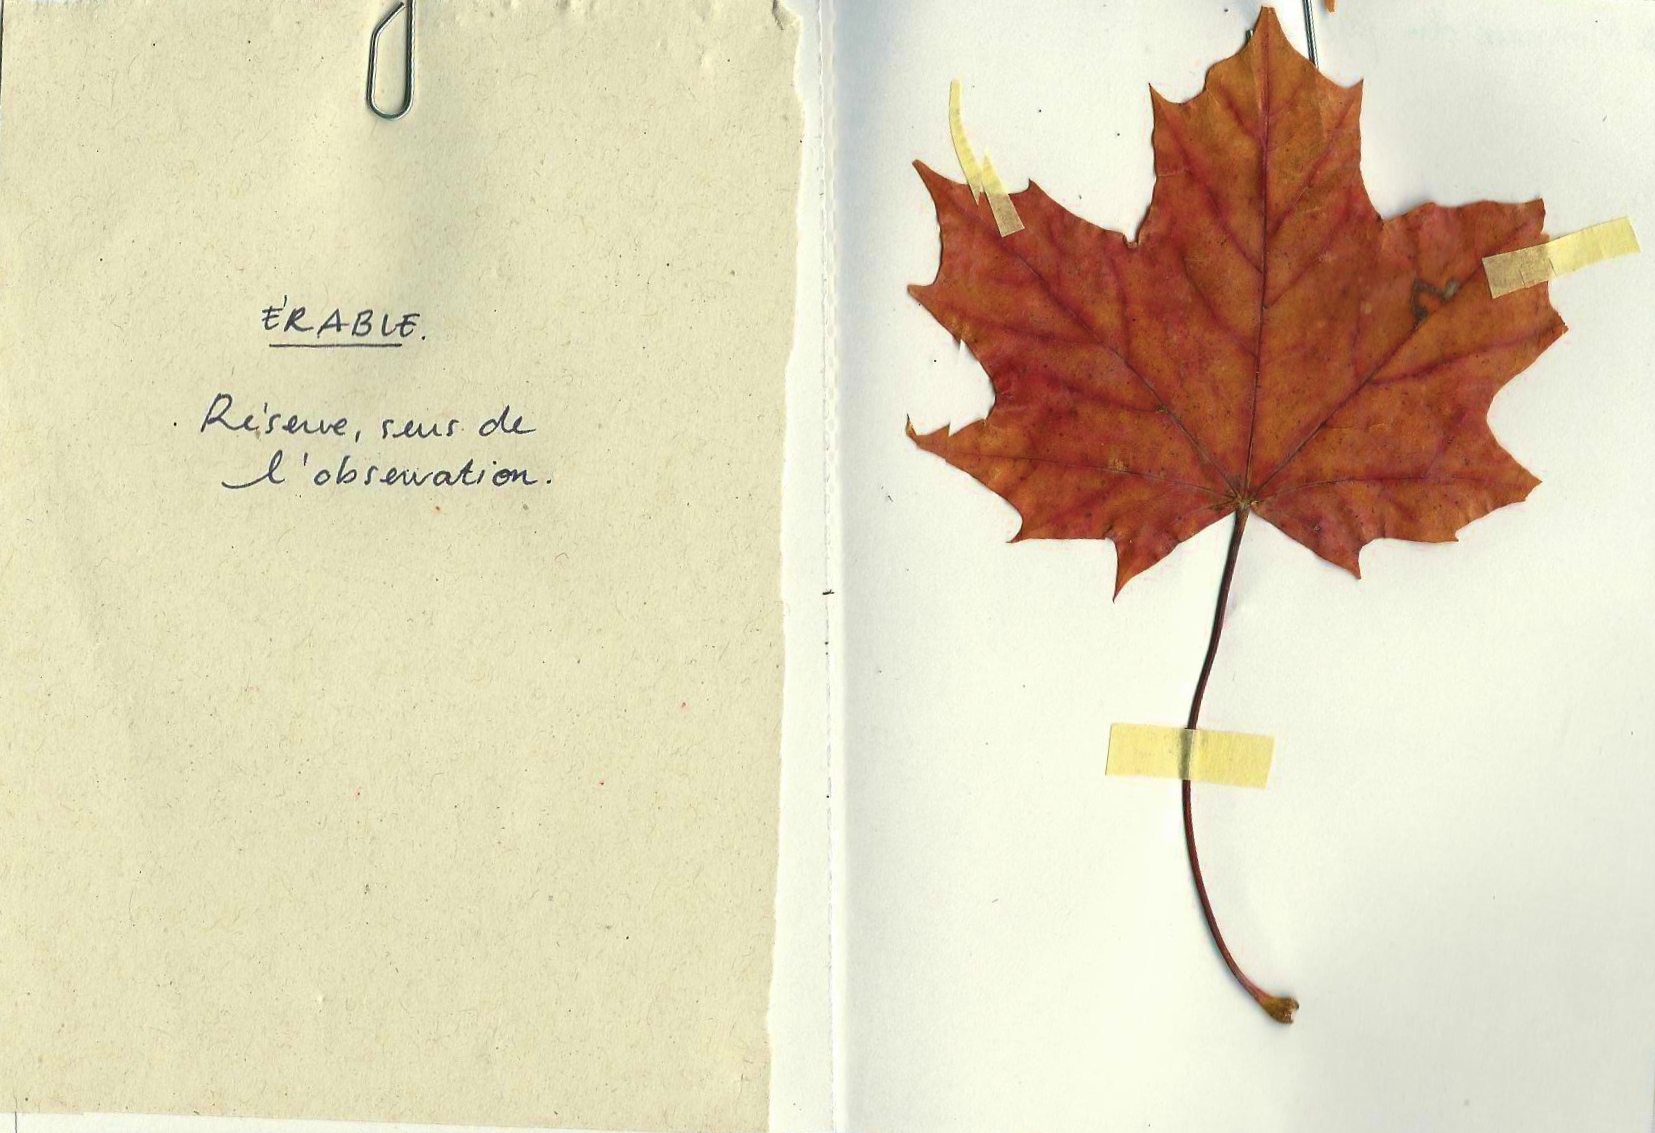 ÉRABLE.
. Réserve, sens de
l'observation.